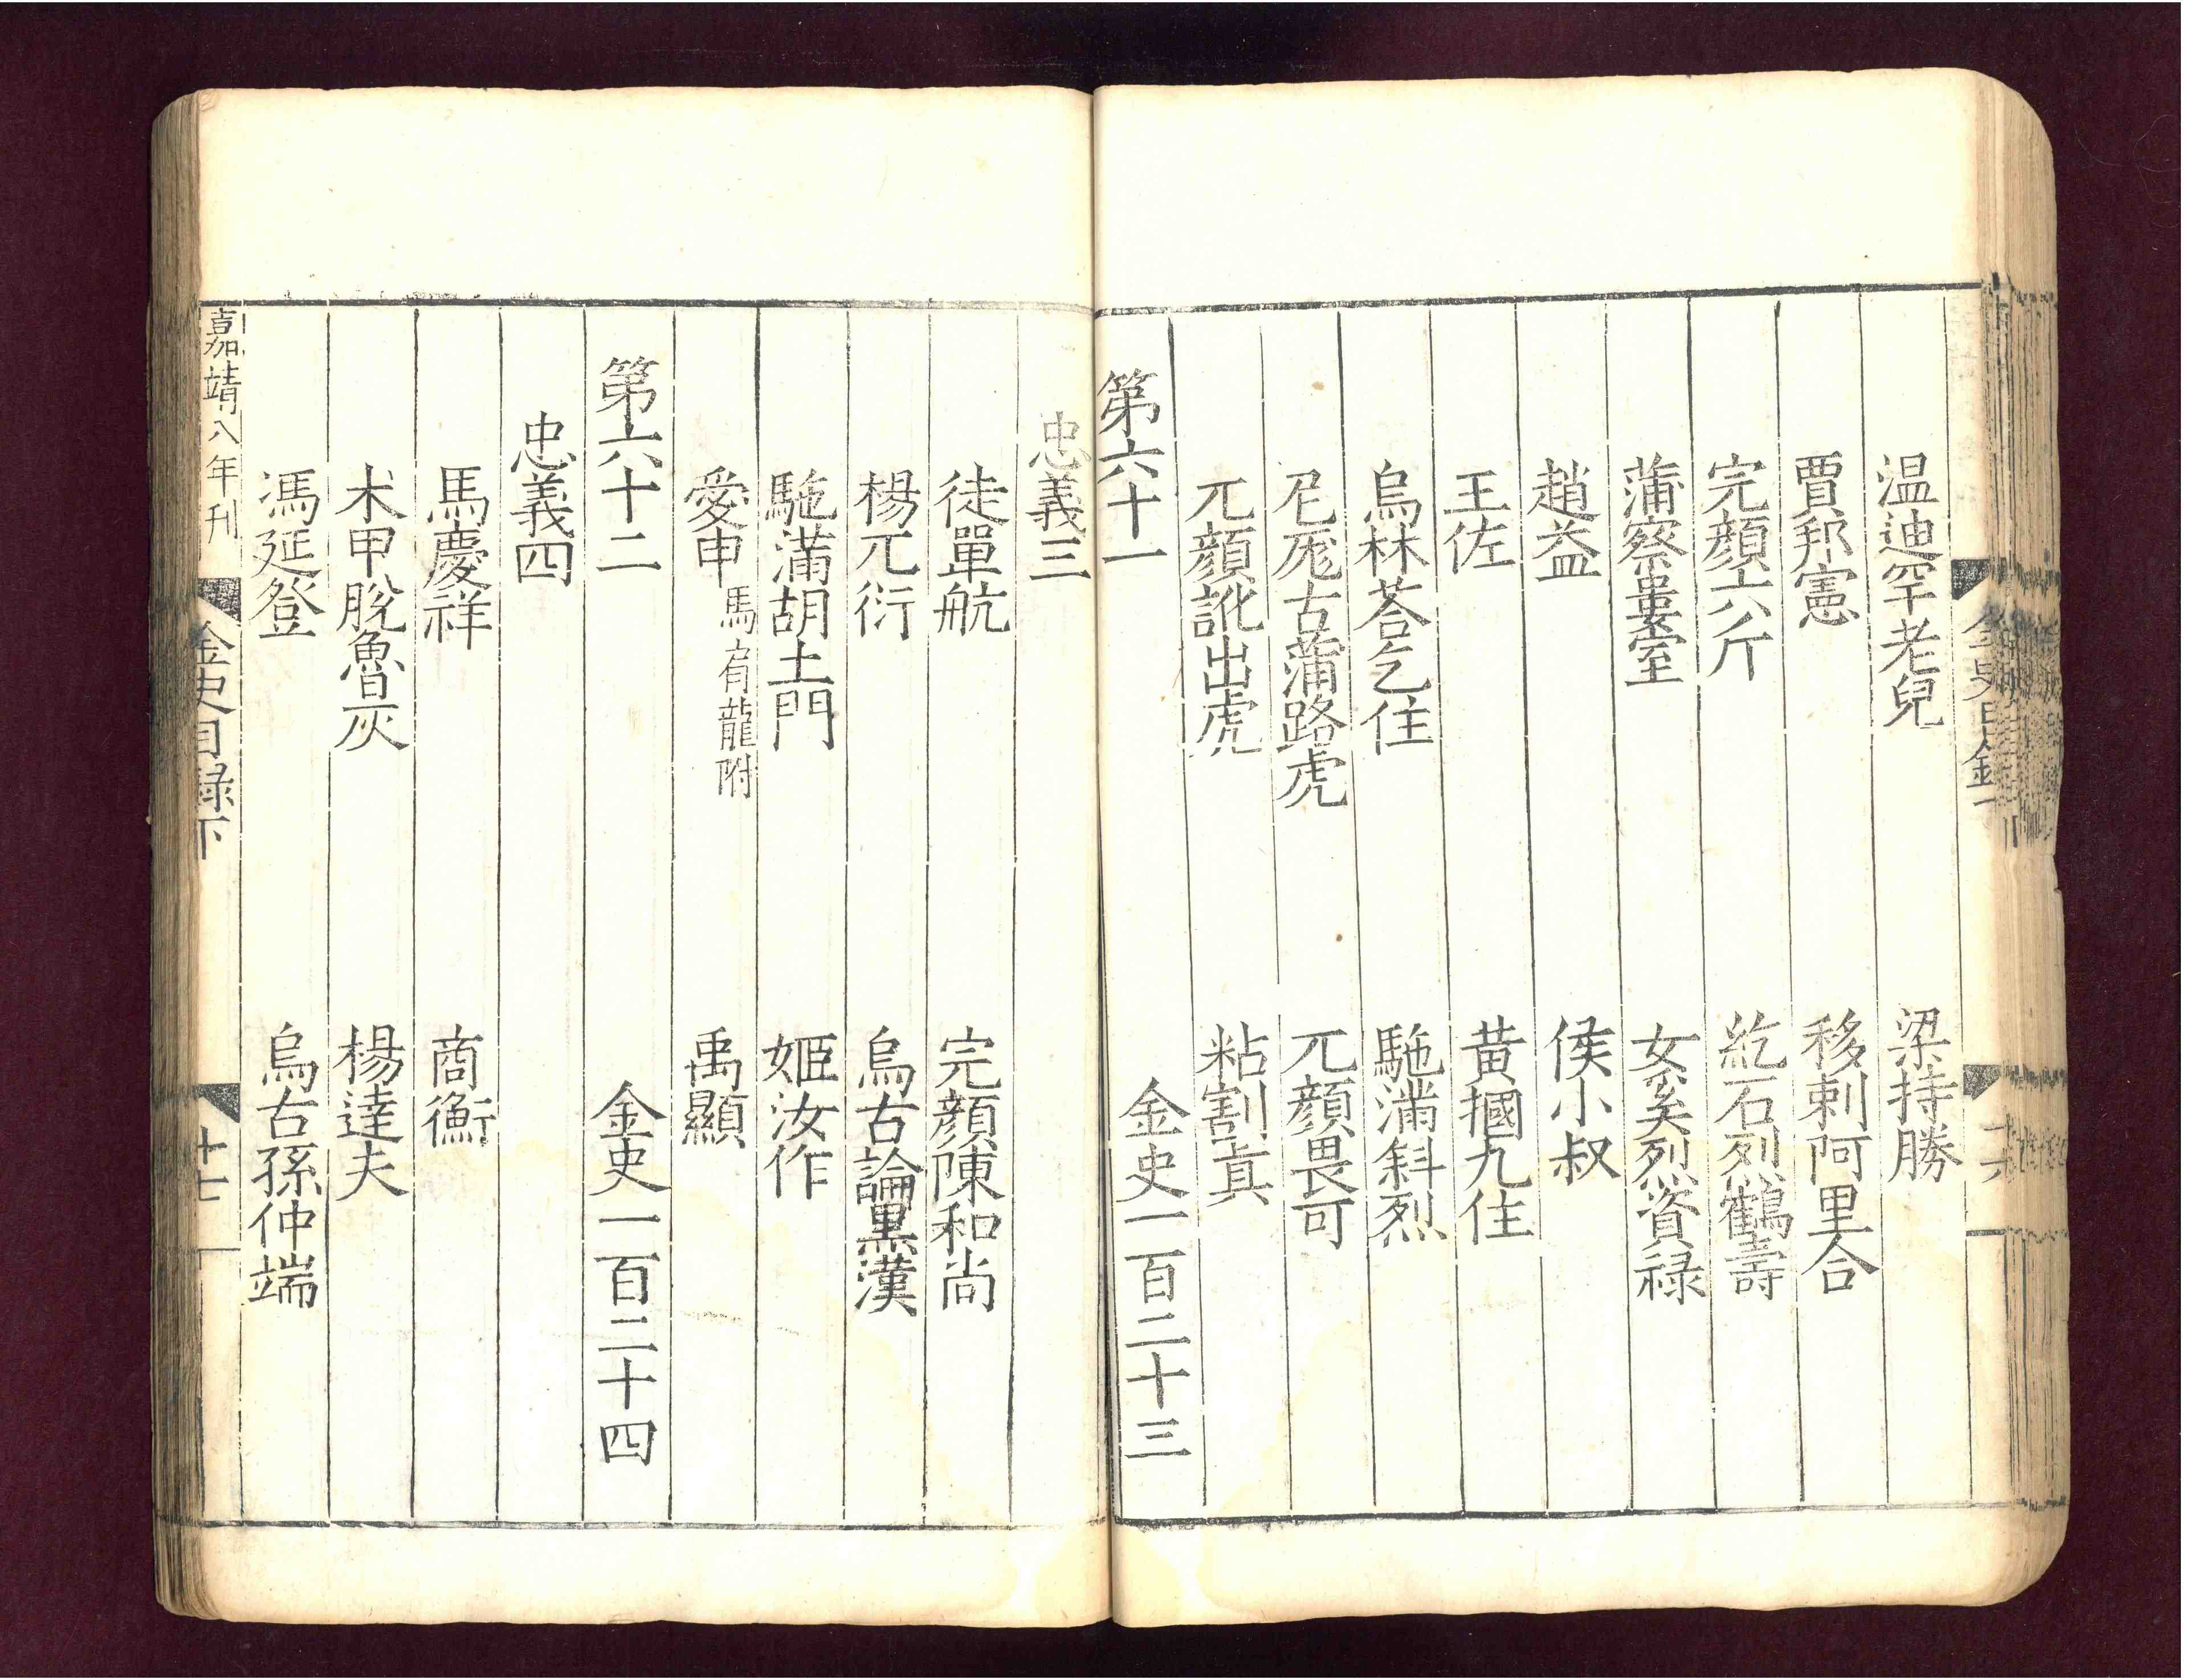 金史目錄下 十六
温迪罕老兒 梁持勝
賈邦憲 移剌阿里合
完顔六斤 紇石烈鶴壽
蒲察婁室 女奚烈資禄
趙益 侯小叔
王佐 黄摑九住
烏林荅乞住 駞滿斜烈
尼厖古蒲路虎 兀顔畏可
兀顔訛出虎 粘割眞
第六十一 金史一百二十三
忠義三
徒單航 完顔陳和尚
楊兀衍 烏古論黒漢
駞滿胡土門 姬汝作
愛申 馬肩龍附 禹顯
第六十二 金史一百二十四
忠義四
馬慶祥 商衡
术甲脫魯灰 楊達夫
馮延登 烏古孫仲端
嘉靖八年刊 金史目録下 十七